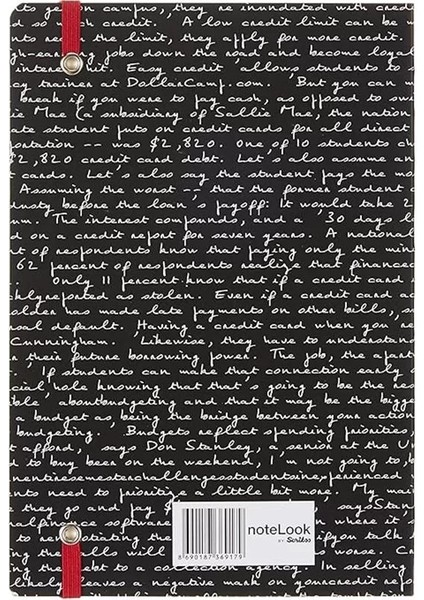 s on campus, they're inundated with credit
to credit. A low credit limit can be
nts need the limit, they apply for more credit.
gh-earning jobs down the road and become loyal
interest hit. Easy credit allows students to
cy trainer at DollarCamp.com. 'But you can
break if you were to pay cash, as opposed to
ie Mae (a subsidiary of Sallie Mae, the nation
ate student puts on credit cards for all direct
portation -- was $2,820. One of 10 students
$2,820 credit card debt. Let's also assume an
t cards. Let's also say the student pays the mo
Assuming the worst -- that the former student
dusty before the loan's payoff: It would take 2
um. The interest compounds, and a '30 days l
d on a credit report for seven years. A national
t of respondents know that paying only the min
62 percent of respondents realize that finance
Only 11 percent know that if a credit card
hlyreported as stolen. Even if a credit card a
older has made late payments on other bills,
sal default. 'Having a credit card when you
Cunningham. 'Likewise, they have to understan
their future borrowing power. The job, the apart
If students can make that connection early
cial hole knowing that that's going to be the res
ible' aboutbudgeting and that it may be the bigge
a budget as being the bridge between your action
budgeting. 'Budgets reflect spending priorities
t afford, says Don Stanley, a senior at the Un
d to buy been on the weekend, I'm not going to
nentiresemesterchallengesstudentsine,perienced
nts need to prioritiz a little bit more. My ma
they go and pay $ saysStan
alfinance software where it
to renegotiating the if yoursc
the bills will be Cr
g the debt to co In selling
likely leaves a negative mark on yourcredit repor
noteLook
BY Scrikss
8 690187 369179